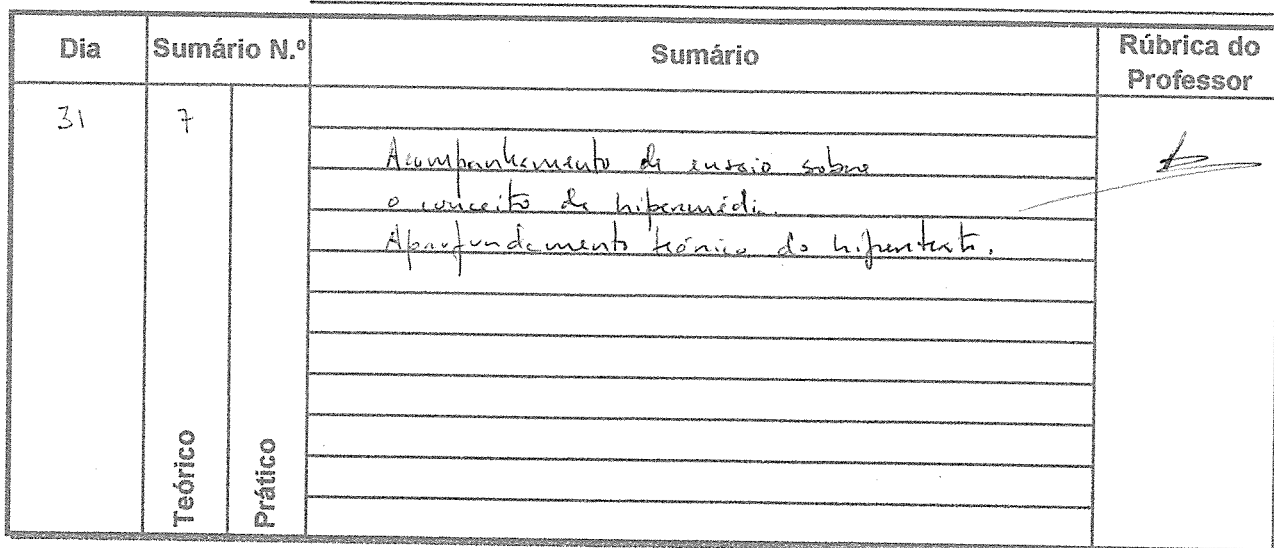 Dia Sumário N.º Sumário Rúbrica do Professor
31 7
Acompanhamento de ensaio sobre
o conceito de hipermédia.
Aprofundamento teórico do hipertexto.
Teórico Prático